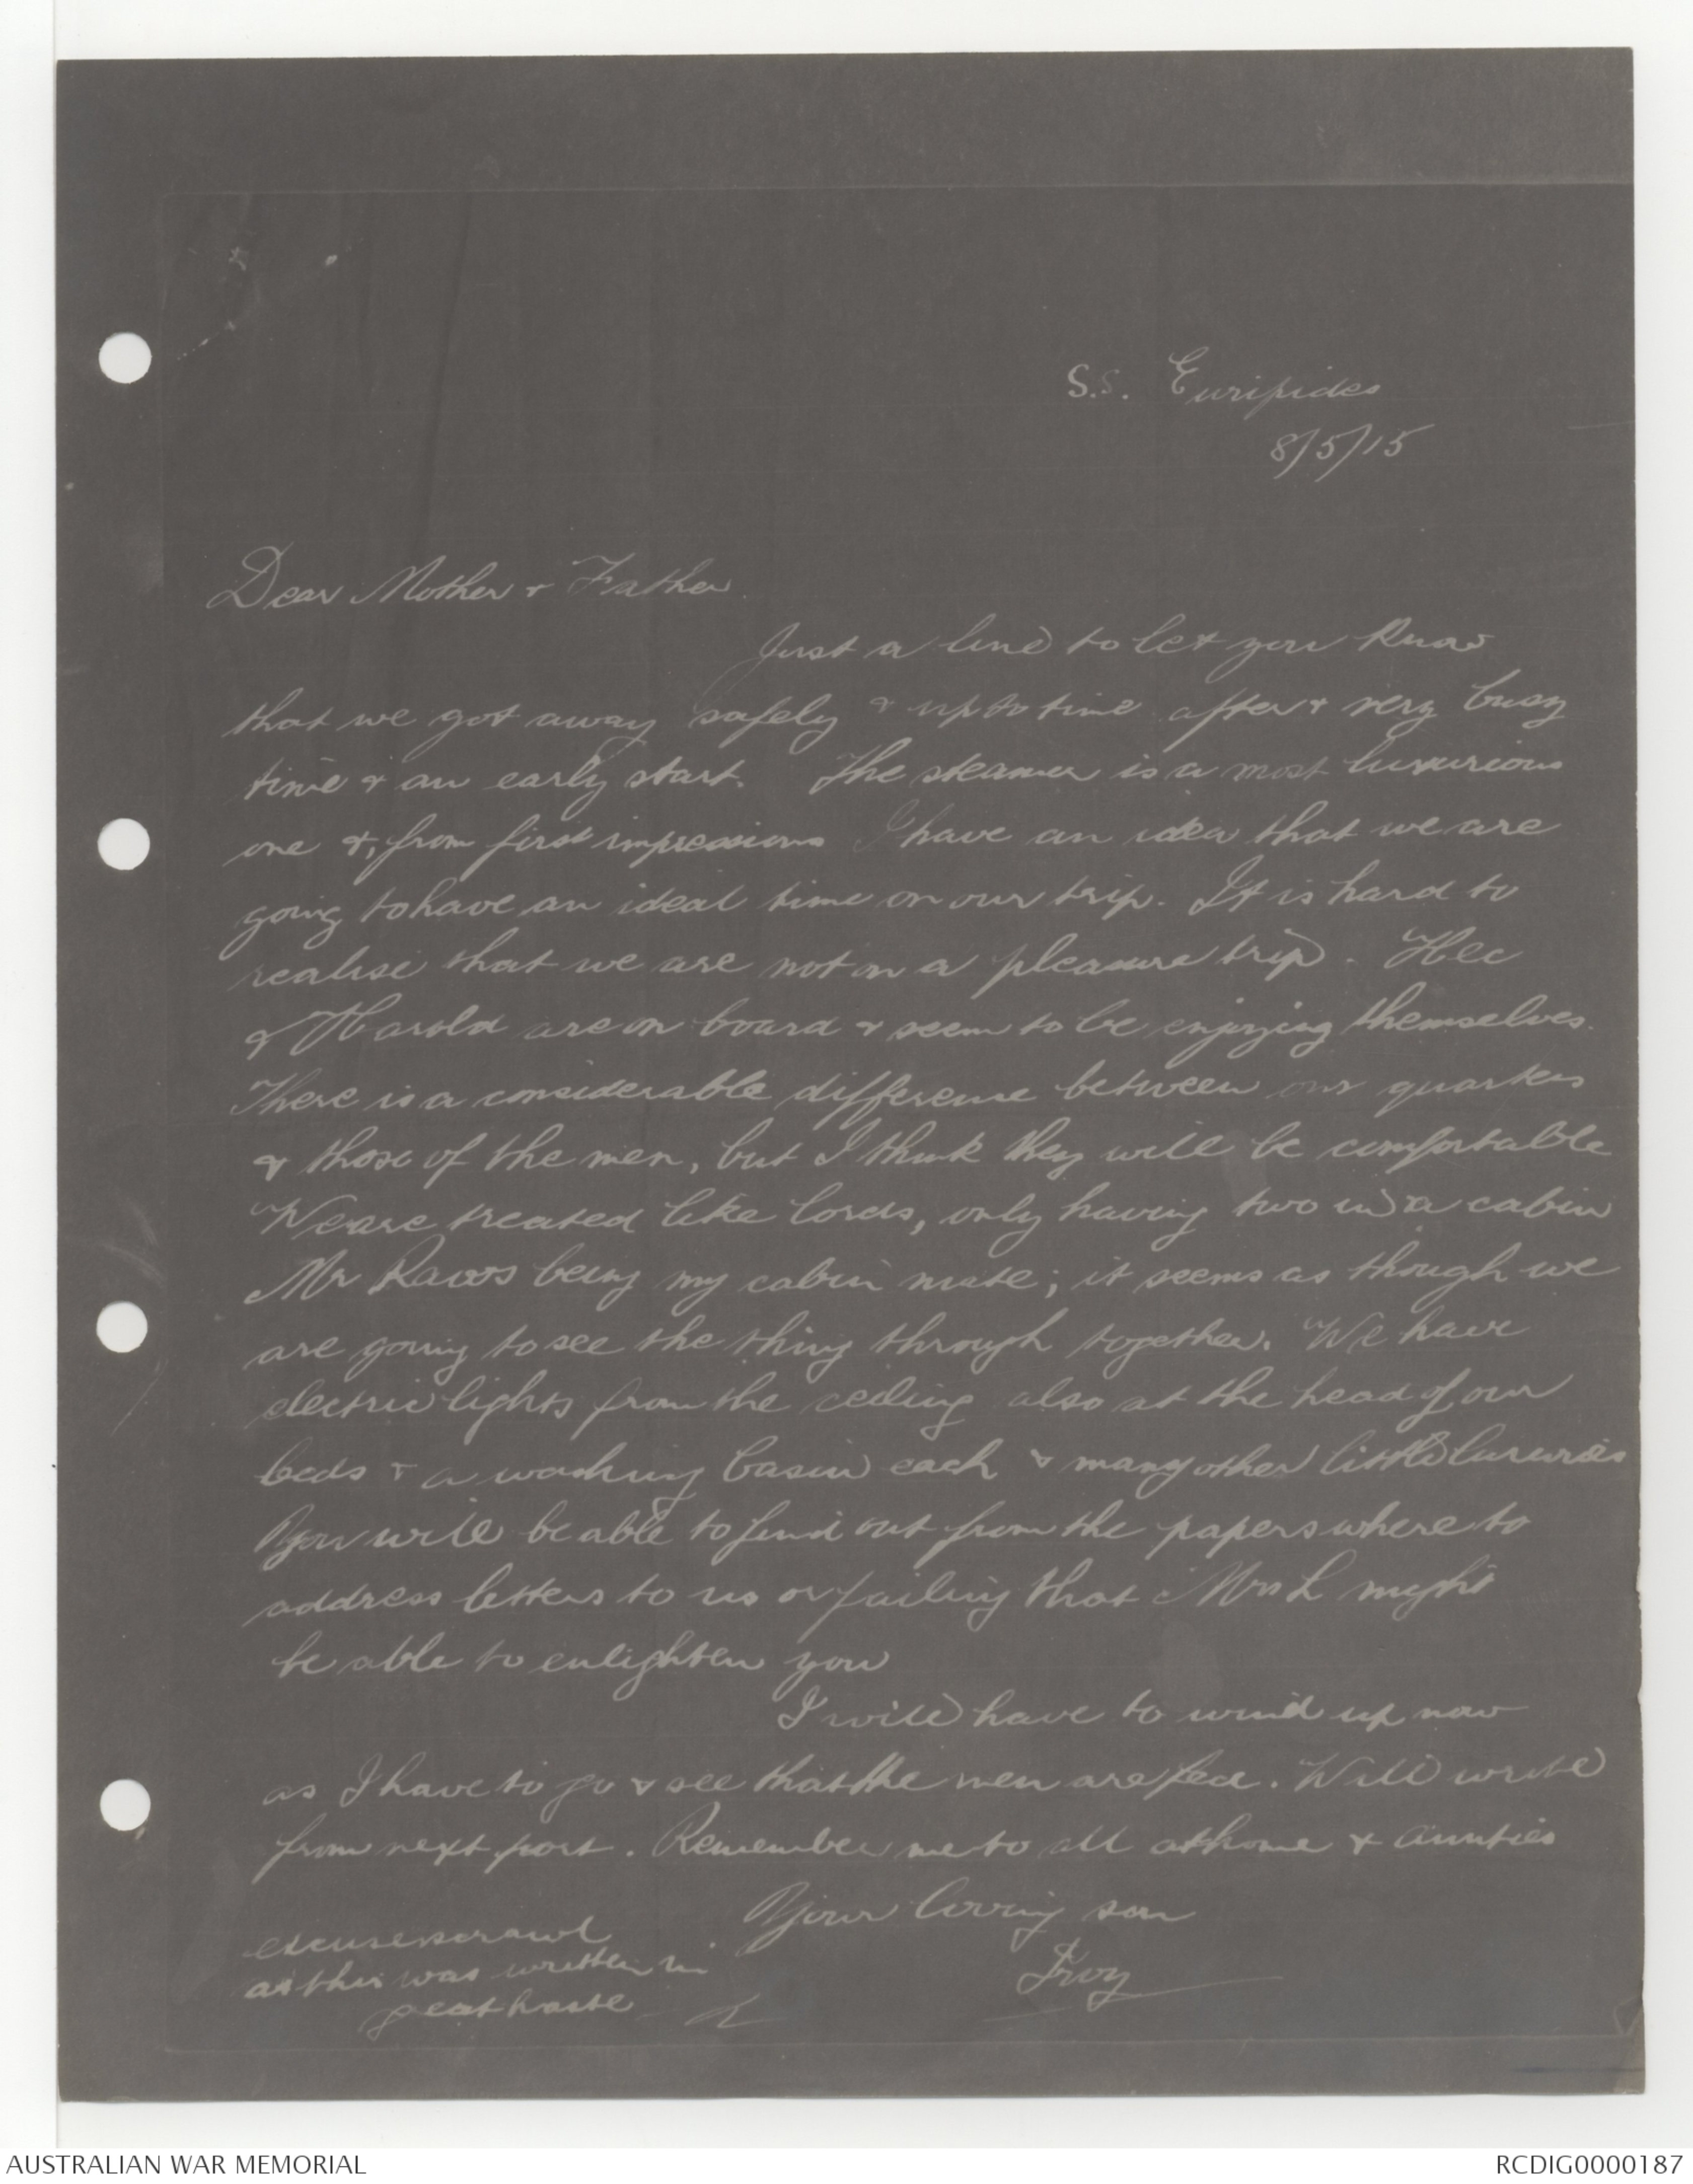 S.S. Euripides
8/5/15
Dear Mother & Father
Just a line to let you know
that we got away safely & up to time after a very busy
time & an early start. The steamer is a most luxurious
one &, from first impressions I have an idea that we are
going to have an ideal time on our trip. It is hard to
realise that we are not on a pleasure trip. Hec
& Harold are on board & seem to be enjoying themselves.
There is a considerable difference between our quarters
& those of the men, but I think they will be comfortable
We are treated like lords, only having two in a cabin
Mr being my cabin mate; it seems as though we
are going to see the thing through together. We have
electric lights from the ceiling also at the head of our
beds & a washing basin each & many other little luxuries
You will be able to find out from the papers where to
address letters to us or failing that Mrs L might
be able to enlighten you
I will have to wind up now
as I have to go & see that the men are fed. Will write
from next port. Remember me to all at home & Aunties
Your loving son
excuse scrawl
as this was written in
great haste
AUSTRALIAN WAR MEMORIAL
RCDIG0000187